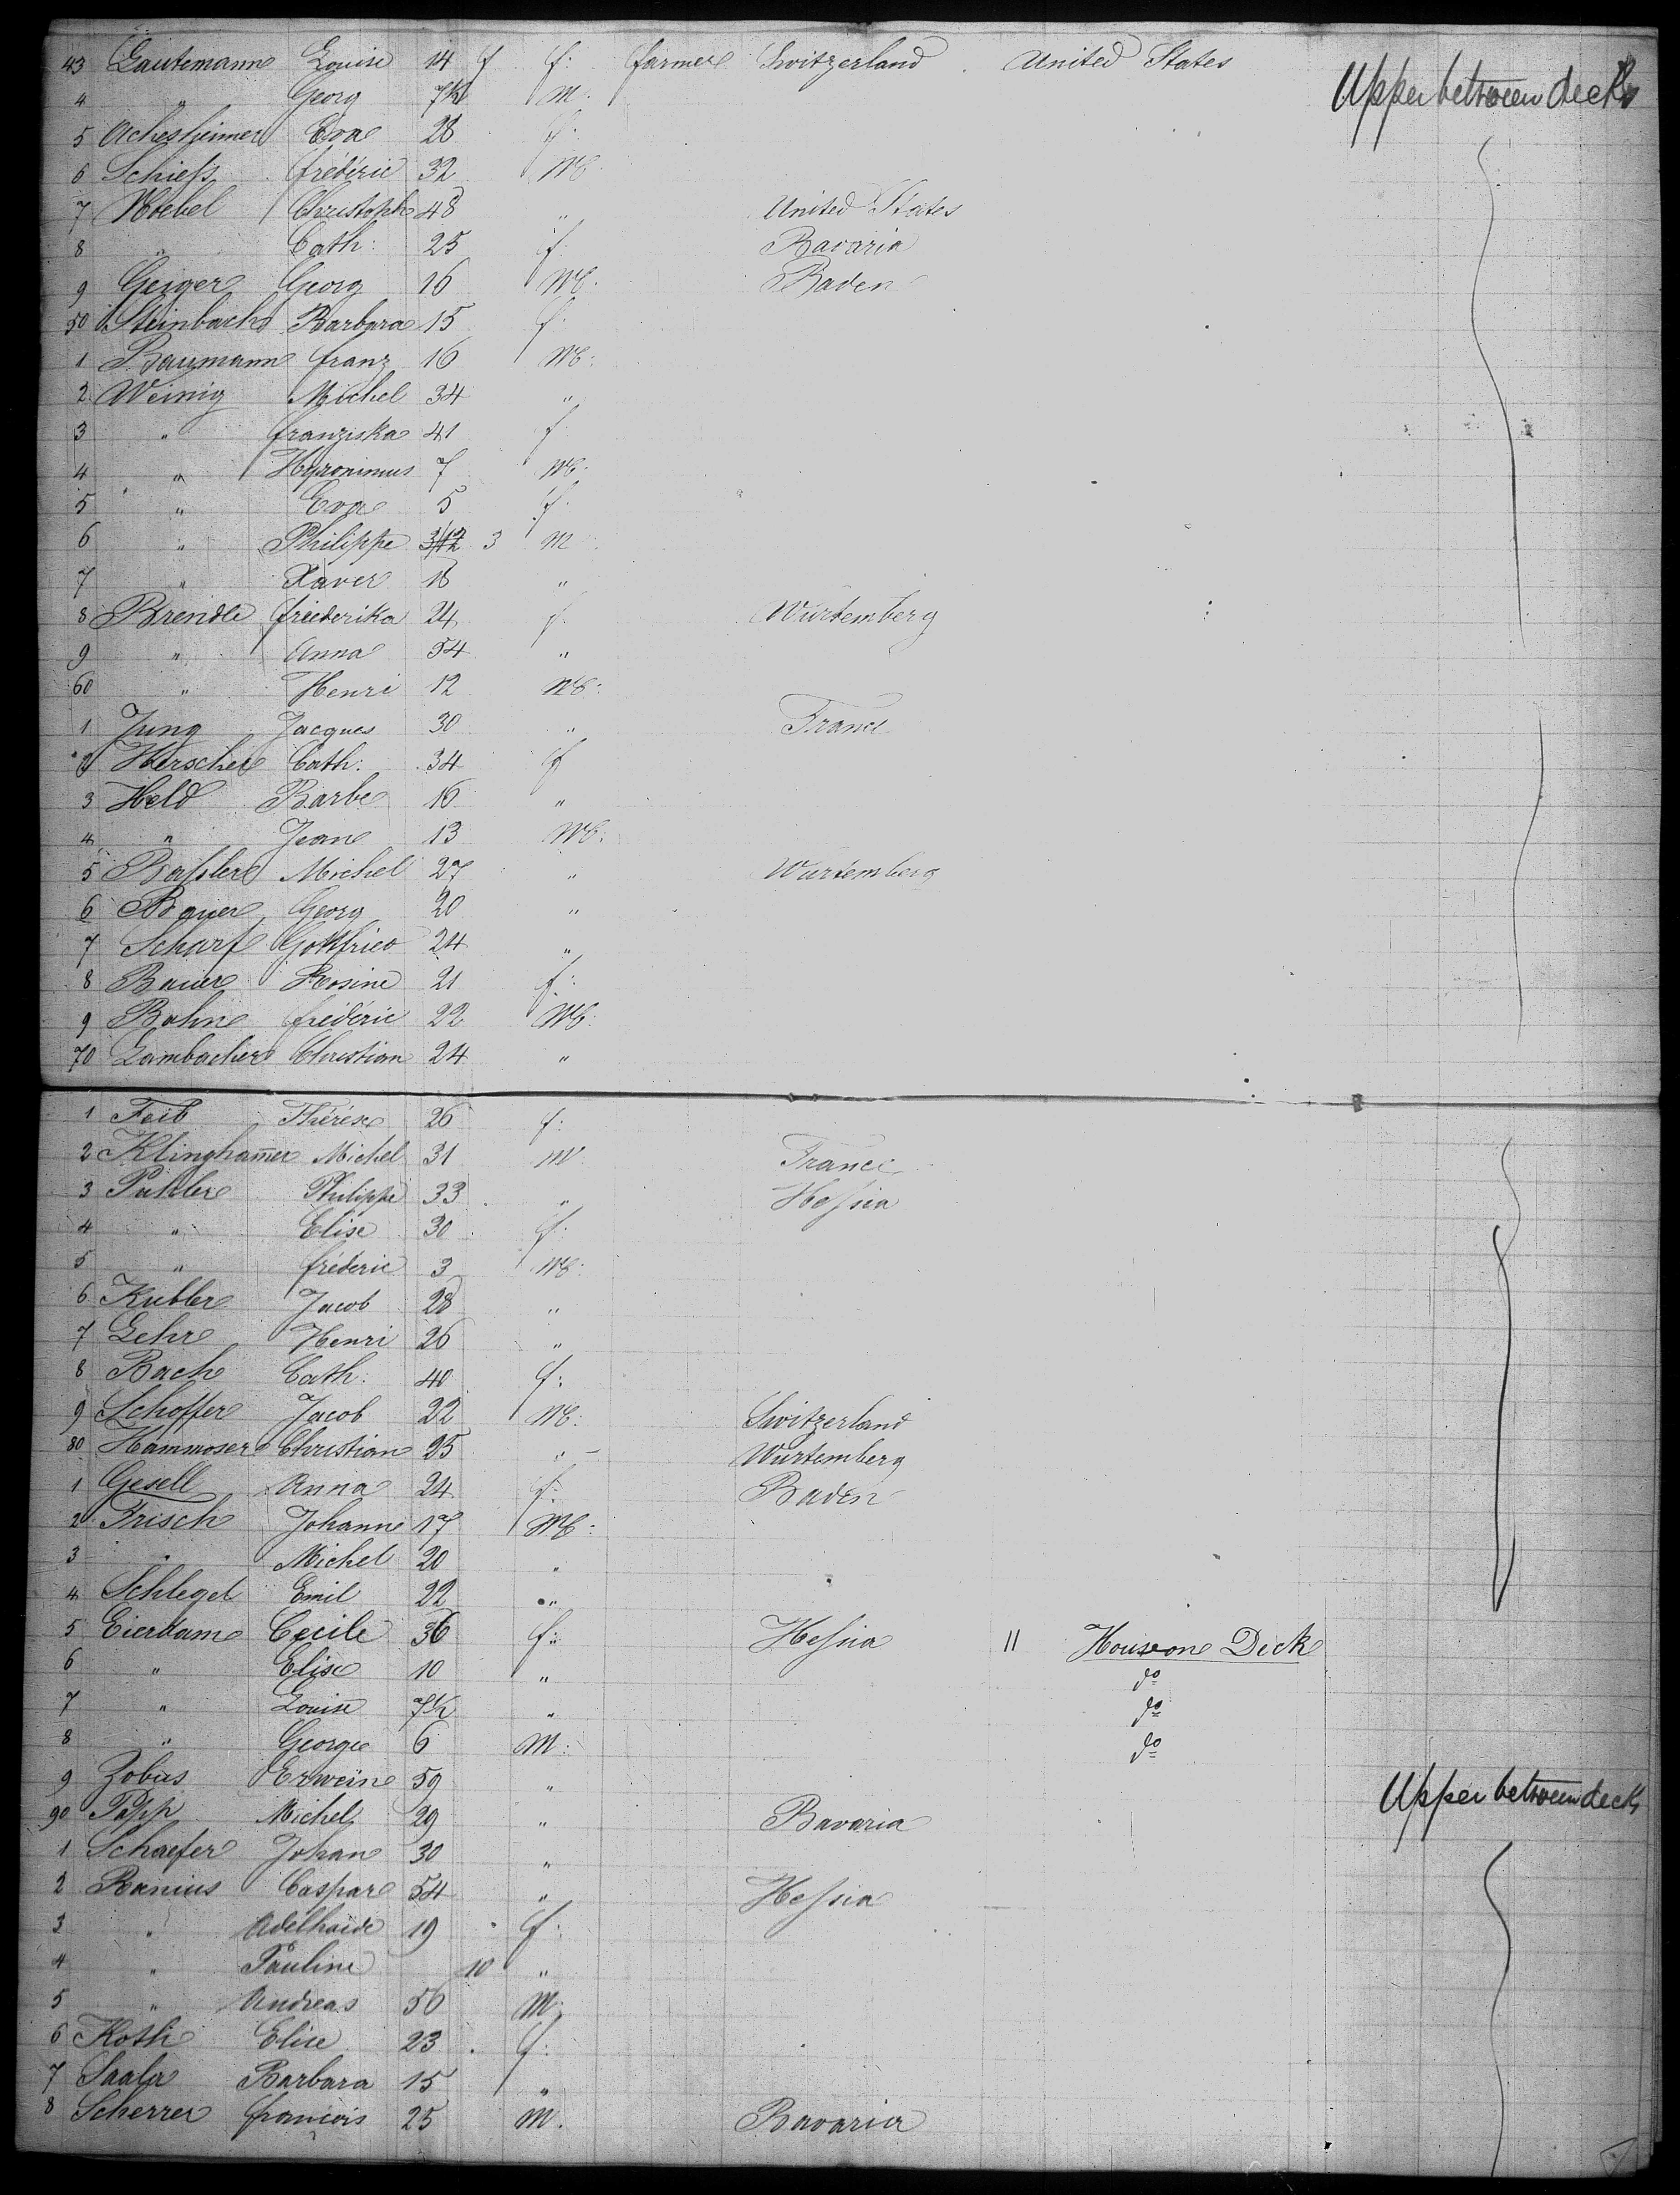 43 Lautemann Louise 14 f f: farmer Switzerland United States Upper between decks
4 " Georg 7½ M.
5 Achesheimer Eva 28 f.
6 Schieß Frédéric 32 M.
7 Hoebel Christoph 48 " United States
8 " Cath: 25 f. Bavaria
9 Geiger Georg 16 M. Baden
50 Steinbach Barbara 15 f.
1 Baumann Franz 16 M:
2 Weinig Michel 34 "
3 " Franziska 41 f
4 " Hyronimus 7 M.
5 " Eva 5 f.
6 " Philippe 3/12 3 M
7 " Xaver 18 "
8 Brendle Friederika 24 f. Würtemberg
9 " Anna 54 "
60 " Henri 12 M:
1 Jung Jacques 30 " France
2 Herscher Cath: 34 f
3 Held Barbe 16 "
4 " Jean 13 M:
5 Baßler Michel 27 " Würtemberg
6 Bauer Georg 20 "
7 Scharf Gottfried 24 "
8 Bauer Rosine 21 f:
9 Bohn Frédéric 22 M:
70 Lambacher Christian 24 "
1 Feib Thérèse 26 f:
2 Klinghamer Michel 31 M France
3 Puhler Philippe 33 " Heßia
4 " Elise 30 f.
5 " Fréderic 3 M:
6 Kubler Jacob 28 "
7 Lehr Henri 26 "
8 Bach Cath: 40 f:
9 Schoffer Jacob 22 M: Switzerland
80 Hammoser Christian 25 " Würtemberg
1 Gesell Anna 24 f: Baden
2 Frisch Johann 17 M:
3 " Michel 20 "
4 Schlegel Emil 22 "
5 Eierdam Cecile 36 f: Heßia " House on Deck
6 " Elise 10 " do
7 " Louise 7½ " do
8 " George 6 M: do
9 Zobus Erwein 59 " Upper between decks
90 Papp Michel 29 " Bavaria
1 Schaefer Johan 30 "
2 Ranius Caspar 54 " Heßia
3 " Adelhaide 19 f:
4 " Pauline 10 "
5 " Andreas 56 M:
6 Koth Elise 23 f:
7 Saala Barbara 15 "
8 Scherrer François 25 M. Bavaria